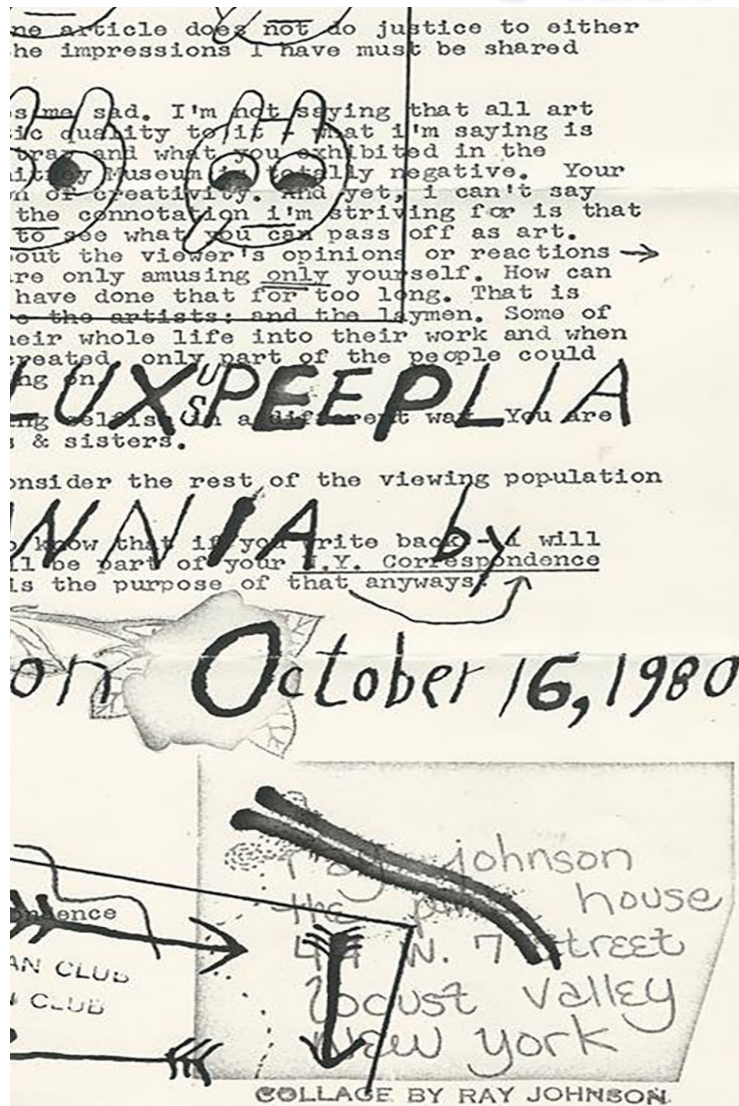 ne article does not do justice to either
he impressions I have must be shared
s me sad. I'm not saying that all art
ic quality to it - what i'm saying is
tray and what you exhibited in the
itney Museum is totally negative. Your
n of creativity. And yet, i can't say
the connotation i'm striving for is that
to see what you can pass off as art.
out the viewer's opinions or reactions →
re only amusing only yourself. How can
have done that for too long. That is
e the artists; and the laymen. Some of
heir whole life into their work and when
created, only part of the people could
ng on.
LUXUSPEEPLIA
ng selfish in a different way. You are
s & sisters.
onsider the rest of the viewing population
NNIA by
o know that if you write back - i will
ll be part of your N.Y. Correspondence
is the purpose of that anyways?
on October 16, 1980
ray johnson
the house
44 W. 7 street
locust valley
new york
ondence
AN CLUB
N CLUB
COLLAGE BY RAY JOHNSON